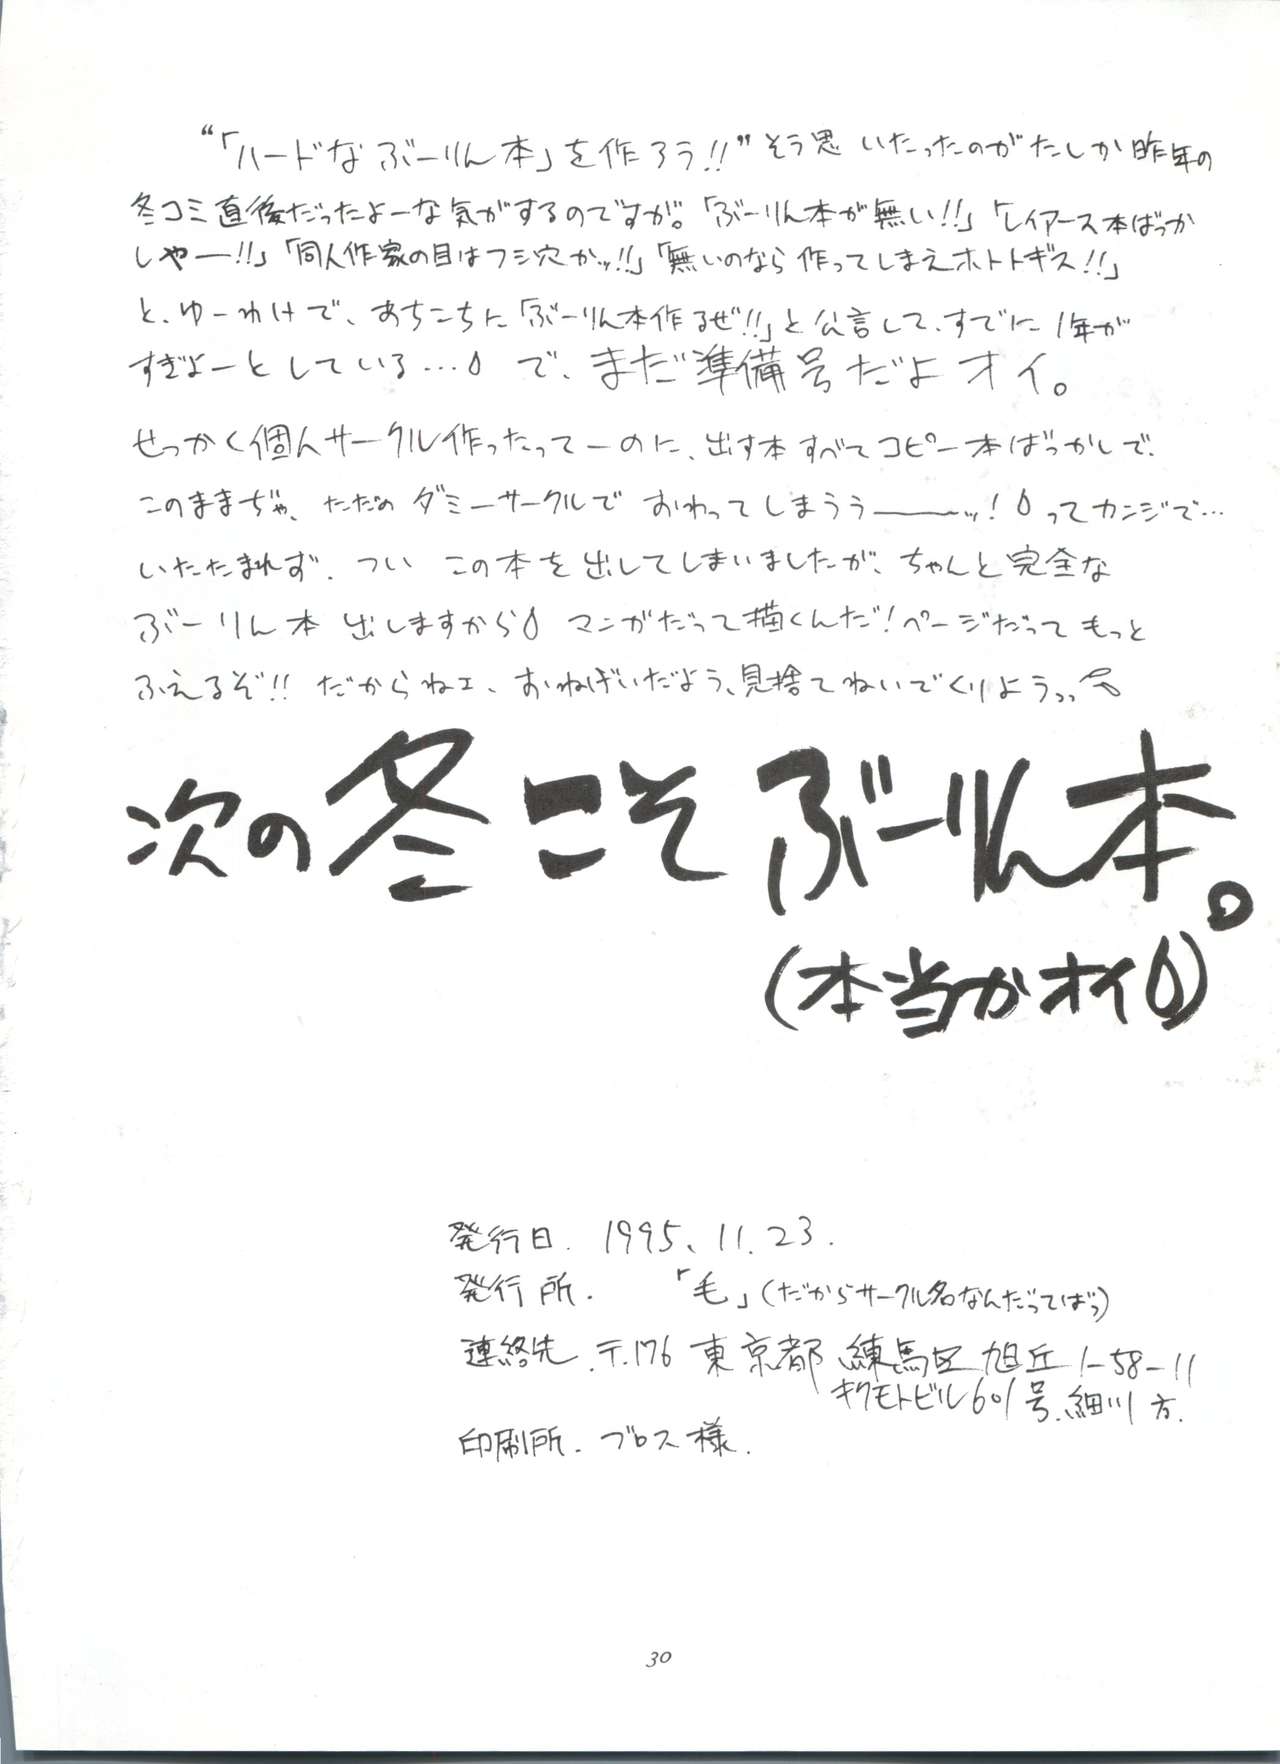 “「ハードな ぶーりん本」を作ろう!!”そう思いたったのがたしか昨年の
冬コミ直後だったよーな気がするのですが。「ぶーりん本が無い!!」「レイアース本ばっか
しやー!!」「同人作家の目はフシ穴かッ!!」「無いのなら作ってしまえホトトギス!!」
と、ゆーわけで、あちこちに「ぶーりん本作るぜ!!」と公言して、すでに1年が
すぎよーとしている… で、まだ準備号だよオイ。
せっかく個人サークル作ったってーのに、出す本すべてコピー本ばっかしで、
このままぢゃ、ただの ダミーサークルで おわってしまうぅ――ッ!ってカンジで…
いたたまれず、つい この本を出してしまいましたが、ちゃんと完全な
ぶーりん本 出しますから マンガだって描くんだ!ページだって もっと
ふえるぞ!! だからねェ、おねげいだよう、見捨てねいでくりようっっ
次の冬こそ ぶーりん本。
(本当かオイ)
発行日. 1995、11.23.
発行所. 「毛」(だからサークル名なんだってばっ)
連絡先.〒176 東京都 練馬区 旭丘 1-58-11
キクモトビル601号.細川方.
印刷所. ブロス様.
30